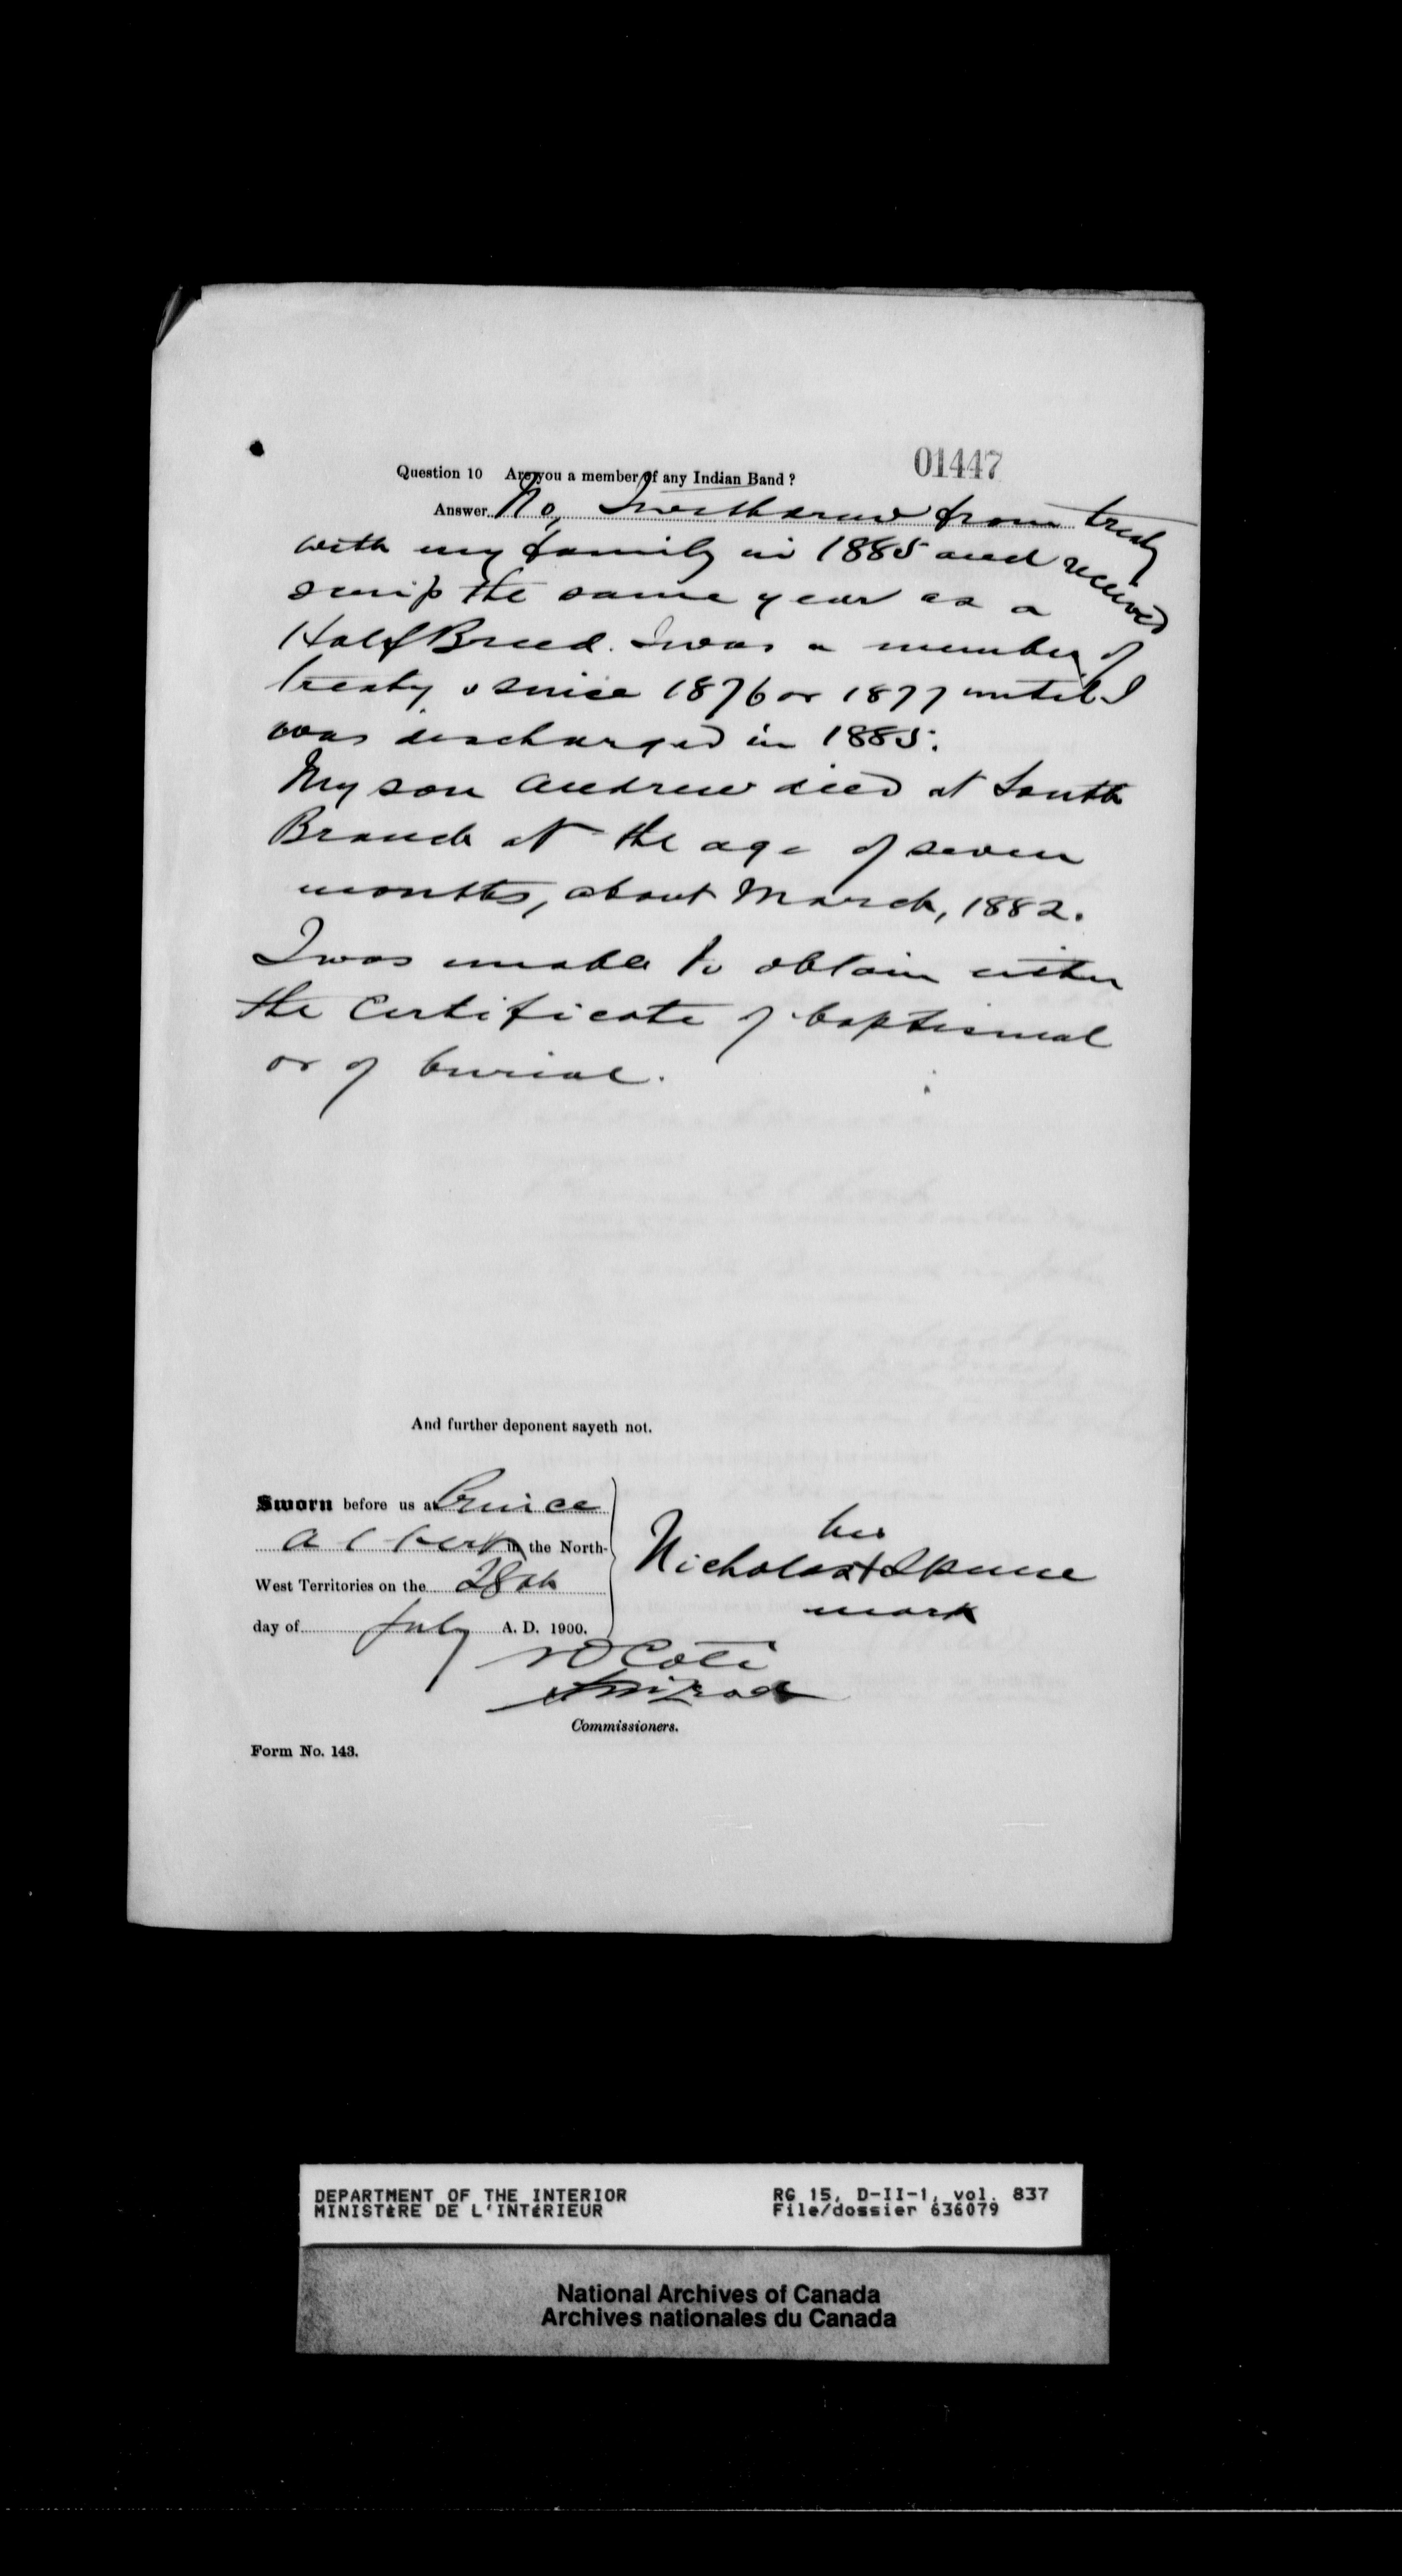 01447
Question 10 Are you a member of any Indian Band ?
Answer No, I withdrew from treaty
with my family in 1885 and received
scrip the same year as a
Half Breed. I was a member of
treaty since 1876 or 1877 until I
was discharged in 1885.
My son Andrew died at South
Branch at the age of seven
months, about March, 1882.
I was unable to obtain either
the Certificate of baptismal
or of burial.
And further deponent sayeth not.
Sworn before us at Prince
Albert in the North-
West Territories on the 28th
day of July A. D. 1900.
his
Nicholas + Spence
mark
Coté
Commissioners.
Form No. 143.
DEPARTMENT OF THE INTERIOR
MINISTÈRE DE L'INTÉRIEUR
RG 15, D-II-1, vol. 837
File/dossier 636079
National Archives of Canada
Archives nationales du Canada